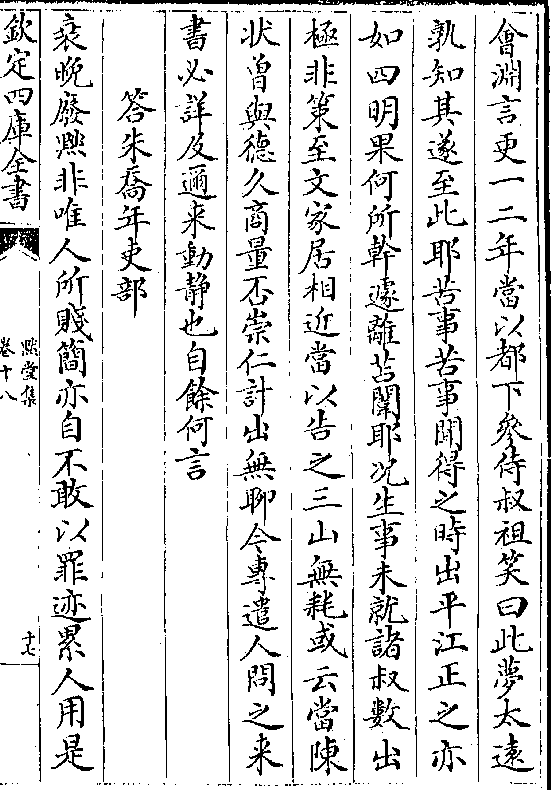 會淵言更一二年當以都下參侍叔祖笑曰此夢太遠
孰知其遂至此耶苦事苦事聞得之時出平江正之亦
如四明果何所幹遽離苫闑耶况生事未就諸叔數出
極非策至文家居相近當以告之三山無耗或云當陳
状曽與徳久商量否崇仁計出無聊今專遣人問之来
書必詳及邇来動静也自餘何言
答朱喬年吏部
衰晩廢㸃非唯人所賤簡亦自不敢以罪迹累人用是
欽定四庫全書
卷十八
十七